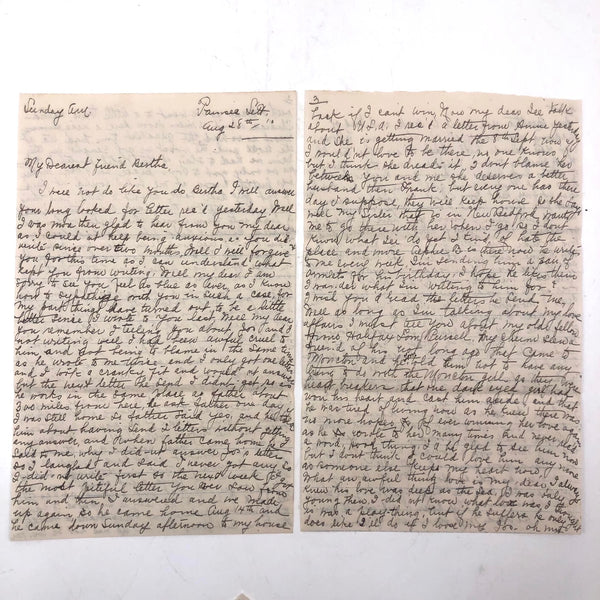 Sunday
Aug 28th/10
My Dearest friend Bertha.
I will not do like you do Bertha I will answer
your long looked for letter rec'd yesterday Well
I was more than glad to hear from you my dear
as I could not help being anxious, as you did
write since over two months, Well I will forgive
you for this time as I understand what
kept you from writing. Well my dear I am
sorry to see you feel as blue as ever, as I know
how to sympathize with you in such a case, for
my part things have turned out to be a little
better since I wrote to you last. Well my dear
you remember I telling you about Joe and I
not writing well I had been awful cruel to
him and got being to blame in the same time
as he wrote to me often and I only got one letter
and I took a cranky fit and would not answer
but the next letter he send I didn't get, as
he works in the same place as father about
miles from here, so father one day
I was still home so father said yes, and he told
him about having send 2 letters without getting
any answer, and when father came home he
said to me why I did not answer Joe's letter
So I laughed and said I never got any so
I did not write first so the next week I got
the most pitiful letter you ever saw from
him and then I answered and we made
up again, so he came home Aug 14th and
he came down Sunday afternoon to my house
3
Look if I cant win Now my dear lets talk
about I rec'd a letter from Annie yesterday
and she is getting married the 6th Sept, now if
I would not love to be there, no one knows
but I think she dreads it, I dont blame her
between you and me she deserves a better
husband then Frank, but every one has there
day I suppose, they will keep house to the
with my Sister that is in New Bedford, wants
me to go there with her when I go, so I dont
know what Ill do yet I tried, I hate the
place and more Aples is there now he writes
me every week, Im sending him a pair of
for his birthday, I hope he likes them
I wonder what Im writing to him for?
I wish you'd read the letters he send me,
Well as long as Im talking about my love
affairs I must tell you about my old fellow
from Halifax Tom Russell, my chum seen a
friend of his not long ago that came to
Moncton and told him not to have any
thing to do with the Moncton girls as they were
heart breakers that one dark eyed girl had
won his heart and cast him aside, and that
he was tired of living now as he knew there was
no more hopes to ever winning her love again
as he wrote to her many times and never had
a word, work then I'd be glad to see him now
but I dont think I could love him any more
as someone else keeps my heart now
What an awful thing love is my dear, I always
knew his love was deep as the sea, I was only
young then, I did not know what love was, I thought
it was a play thing, but if he suffers he only
does like I'll do if I love my Joe, oh my